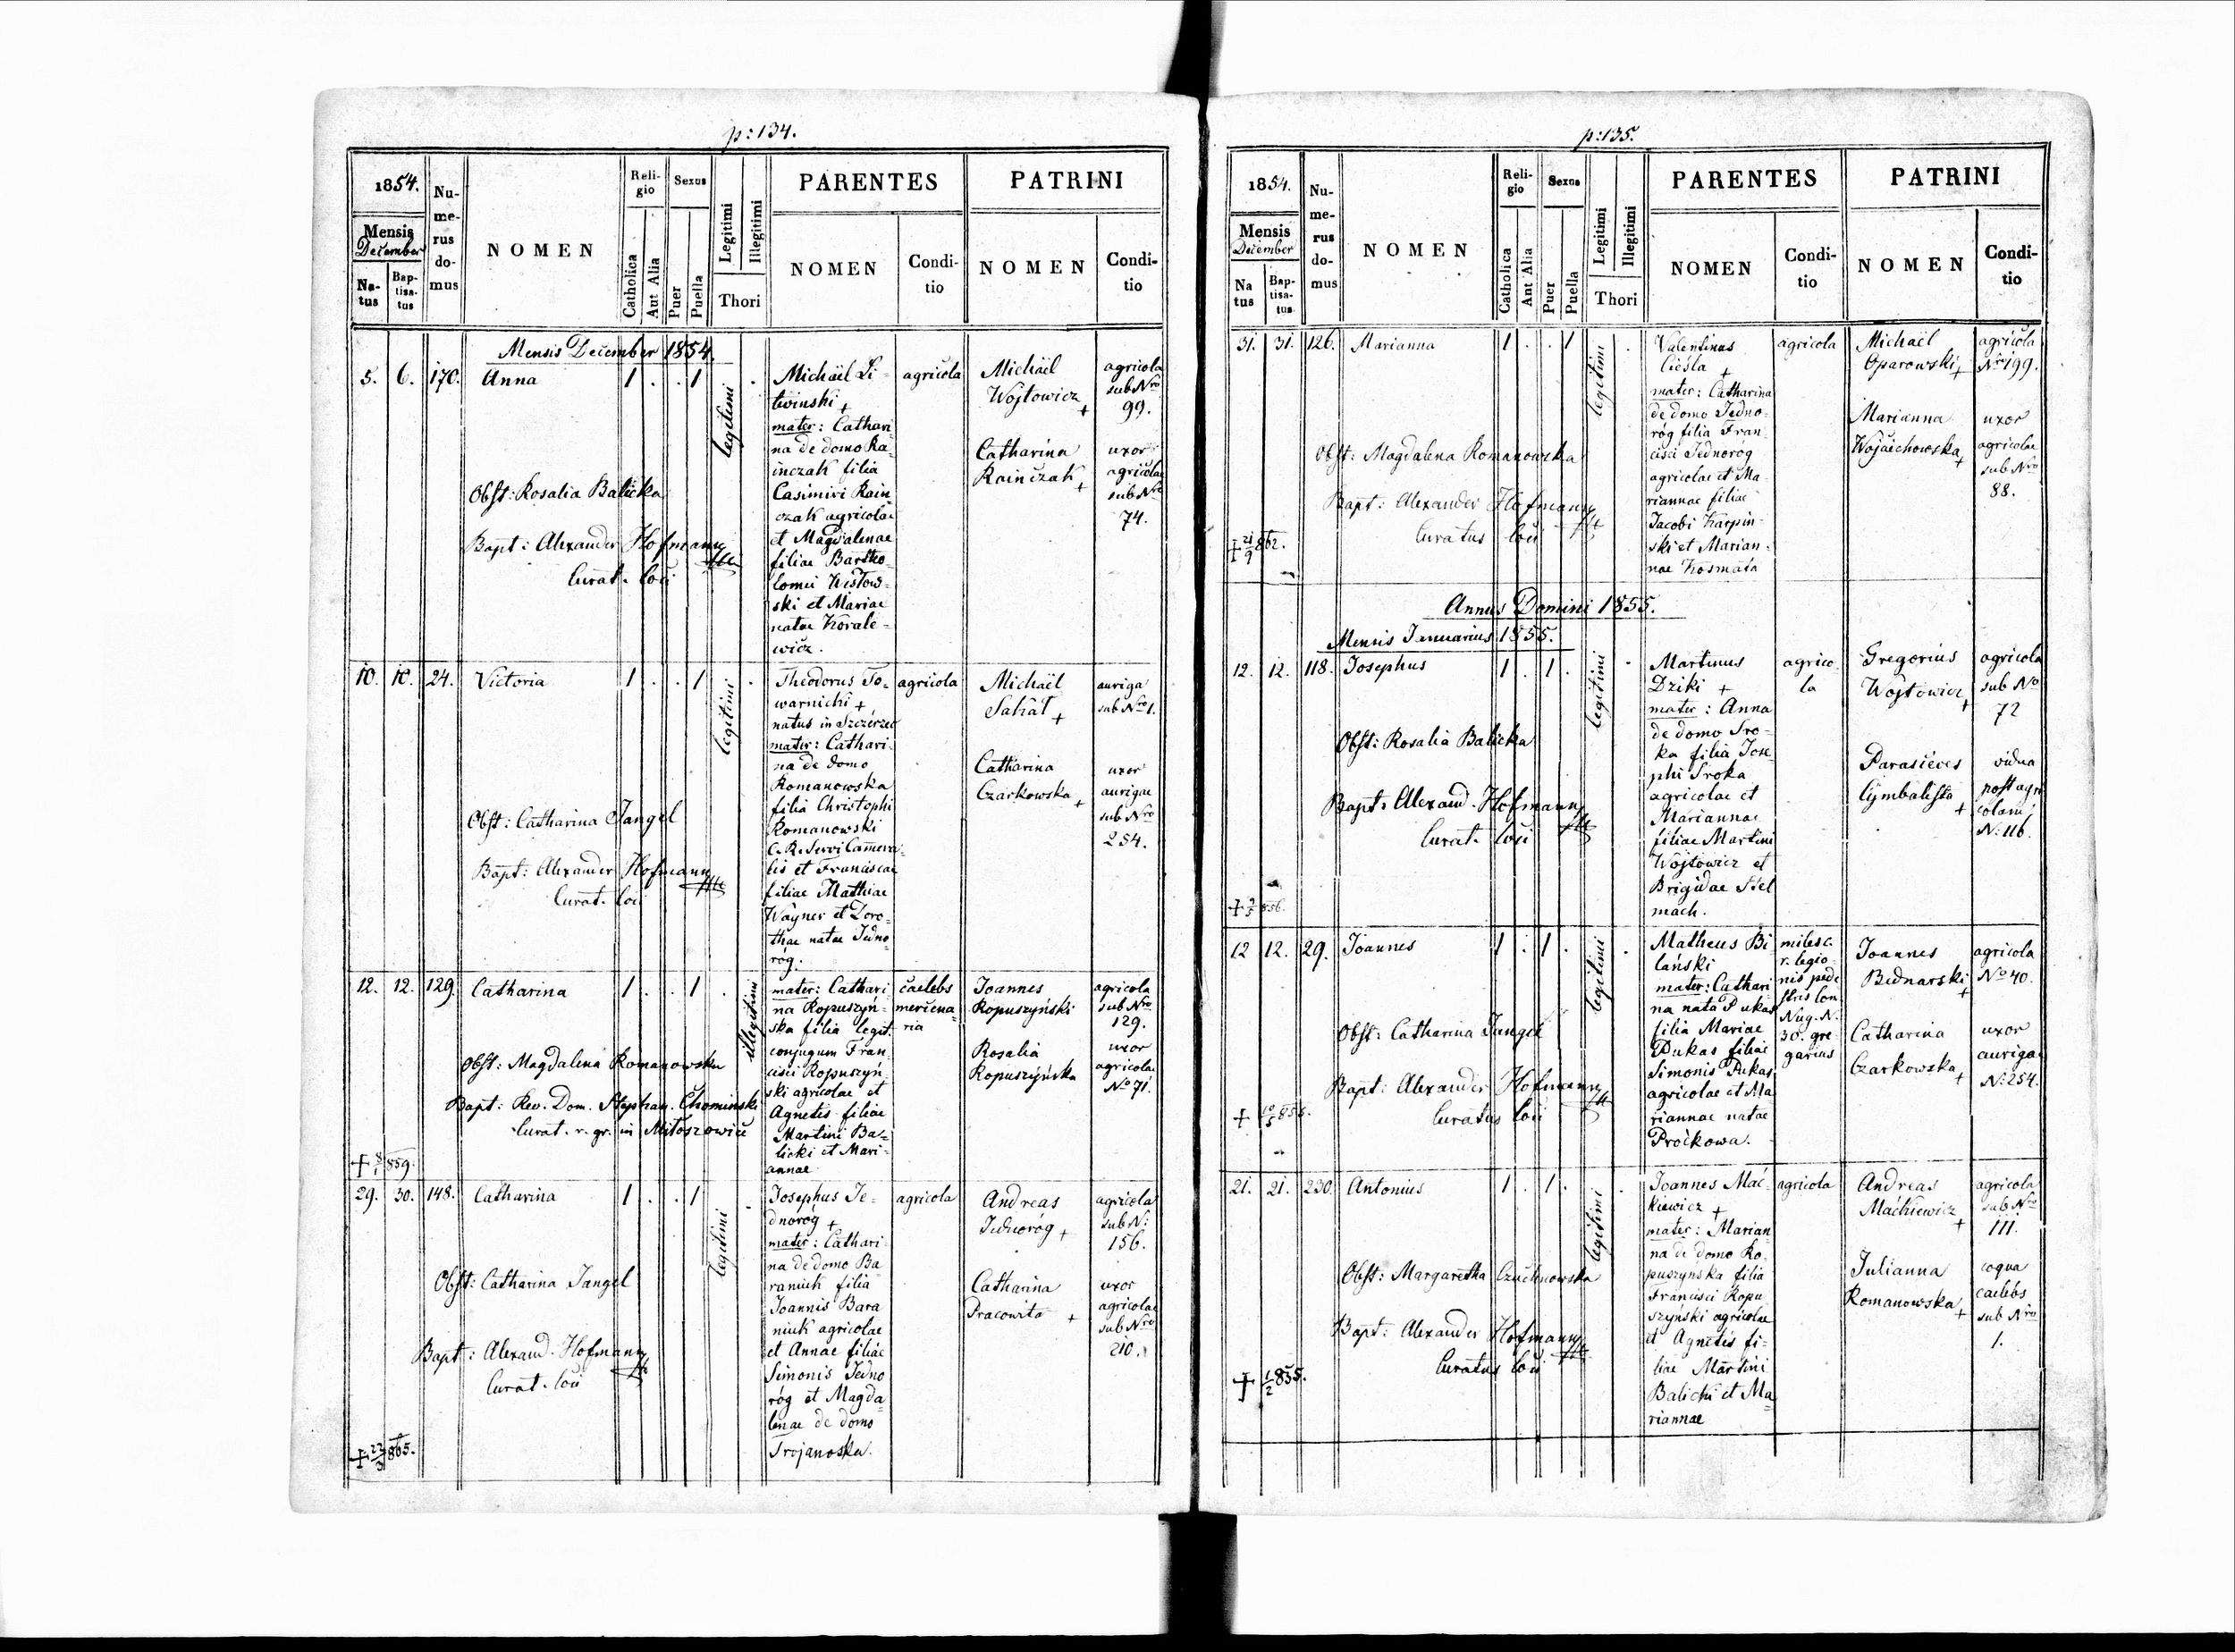 p: 134.
1854.
Mensis
December
Na-
tus
Bap-
tisa-
tus
Nu-
me-
rus
do-
mus
NOMEN
Reli-
gio
Catholica
Aut Alia
Sexus
Puer
Puella
Legitimi
Illegitimi
Thori
PARENTES
NOMEN
Condi-
tio
PATRINI
NOMEN
Condi-
tio
Mensis December 1854.
5. 6. 170. Anna 1 . . 1 .
legitimi
Obst: Rosalia Balicka
Bapt: Alexander Hofmann
Curat. loci
Michäel Li-
twinski +
mater: Cathari
na de domo Ra-
inczak filia
Casimiri Rain
czak agricolae
et Magdalenae
filiae Bartho-
lomei Wisłow-
ski et Mariae
natae Korale-
wicz.
agricola
Michäel
Wojtowicz +
Catharina
Rainczak +
agricola
sub Nro
99.
uxor
agricolae
sub Nro
74.
10. 10. 24. Victoria 1 . . 1 .
legitimi
Obst: Catharina Jangel
Bapt: Alexander Hofmann
Curat. loci
Theodorus To-
warnicki +
natus in Szczerzec
mater: Cathari-
na de domo
Romanowska
filia Christophi
Romanowski
C. R. Servi Camera-
lis et Franciscae
filiae Mathiae
Wayner et Doro-
thae natae Jedno-
róg.
agricola
Michäel
Sakat +
Catharina
Czarkowska +
auriga
sub Nro 1.
uxor
aurigae
sub Nro
254.
12. 12. 129. Catharina 1 . . 1 .
illegitimi
Obst: Magdalena Romanowska
Bapt: Rev. Dom. Stephan. Chominski
Curat. r. gr. in Miłoszowice
+ 8/1 859.
mater: Cathari
na Ropuszyń-
ska filia legit.
conjugum Fran
cisci Ropuszyń-
ski agricolae et
Agnetis filiae
Martini Ba-
licki et Mari-
annae
caelebs
mercena-
ria
Joannes
Ropuszyński
Rosalia
Ropuszyńska
agricola
sub Nro
129.
uxor
agricolae
No 71.
29. 30. 148. Catharina 1 . . 1 .
legitimi
Obst: Catharina Jangel
Bapt: Alexand. Hofmann
Curat. loci
865.
Josephus Je-
dnoróg +
mater: Cathari
na de domo Ba
raniuk filia
Joannis Bara
niuk agricolae
et Annae filiae
Simonis Jedno
róg et Magda-
lenae de domo
Trojanoska.
agricola
Andreas
Jednoróg +
Catharina
Pracowita +
agricola
sub N:
156.
uxor
agricolae
sub Nro
210.
p: 135.
1854.
Mensis
December
Na
tus
Bap-
tisa-
tus
Nu-
me-
rus
do-
mus
NOMEN
Reli-
gio
Catholica
Ant Alia
Sexus
Puer
Puella
Legitimi
Illegitimi
Thori
PARENTES
NOMEN
Condi-
tio
PATRINI
NOMEN
Condi-
tio
31. 31. 126. Marianna 1 . . 1 .
legitimi
Obst: Magdalena Romanowska
Bapt: Alexander Hofmann
Curatus loci
+ 21/9 862.
Valentinus
Cieśla +
mater: Catharina
de domo Jedno-
róg filia Fran
cisci Jednoróg
agricolae et Ma-
riannae filiae
Jacobi Karpin-
ski et Marian-
nae Kosmata
agricola
Michäel
Oparowski +
Marianna
Wojciechowska +
agricola
Nro 199.
uxor
agricolae
sub Nro
88.
Annus Domini 1855.
Mensis Januarius 1855.
12. 12. 118. Josephus 1 . 1 . .
legitimi
Obst: Rosalia Balicka
Bapt: Alexand. Hofmann
Curat. loci
856.
Martinus
Dziki +
mater: Anna
de domo Sro-
ka filia Jose-
phi Sroka
agricolae et
Mariannae
filiae Martini
Wojtowicz et
Brigidae Stel
mach.
agrico-
la
Gregorius
Wojtowicz +
Parasieves
Cymbalista +
agricola
sub No
72
vidua
post agri
colam
N: 116.
12 12. 29. Joannes 1 . 1 . .
legitimi
Obst: Catharina Jangel
Bapt: Alexander Hofmann
Curatus loci
Matheus Bi
lański
mater: Cathari
na nata Pukas
filia Mariae
Pukas filiae
Simonis Pukas
agricolae et Ma
riannae natae
Proćkowa.
miles c.
r. legio-
nis pede
stris Com
Nug. N.
30. gre-
garius
Joannes
Bednarski +
Catharina
Czarkowska +
agricola
No 40.
uxor
aurigae
N: 254.
21. 21. 230. Antonius 1 . 1 . .
legitimi
Obst: Margaretha Czuchnowska
Bapt: Alexander Hofmann
Curatus loci
+ 1/2 855.
Joannes Mać-
kiewicz +
mater: Marian
na de domo Ro-
puszyńska filia
Francisci Ropu
szyński agricolae
et Agnetis fi-
liae Martini
Balicki et Ma
riannae
agricola
Andreas
Maćkiewicz +
Julianna
Romanowska +
agricola
sub Nro
111.
coqua
caelebs
sub Nro
1.